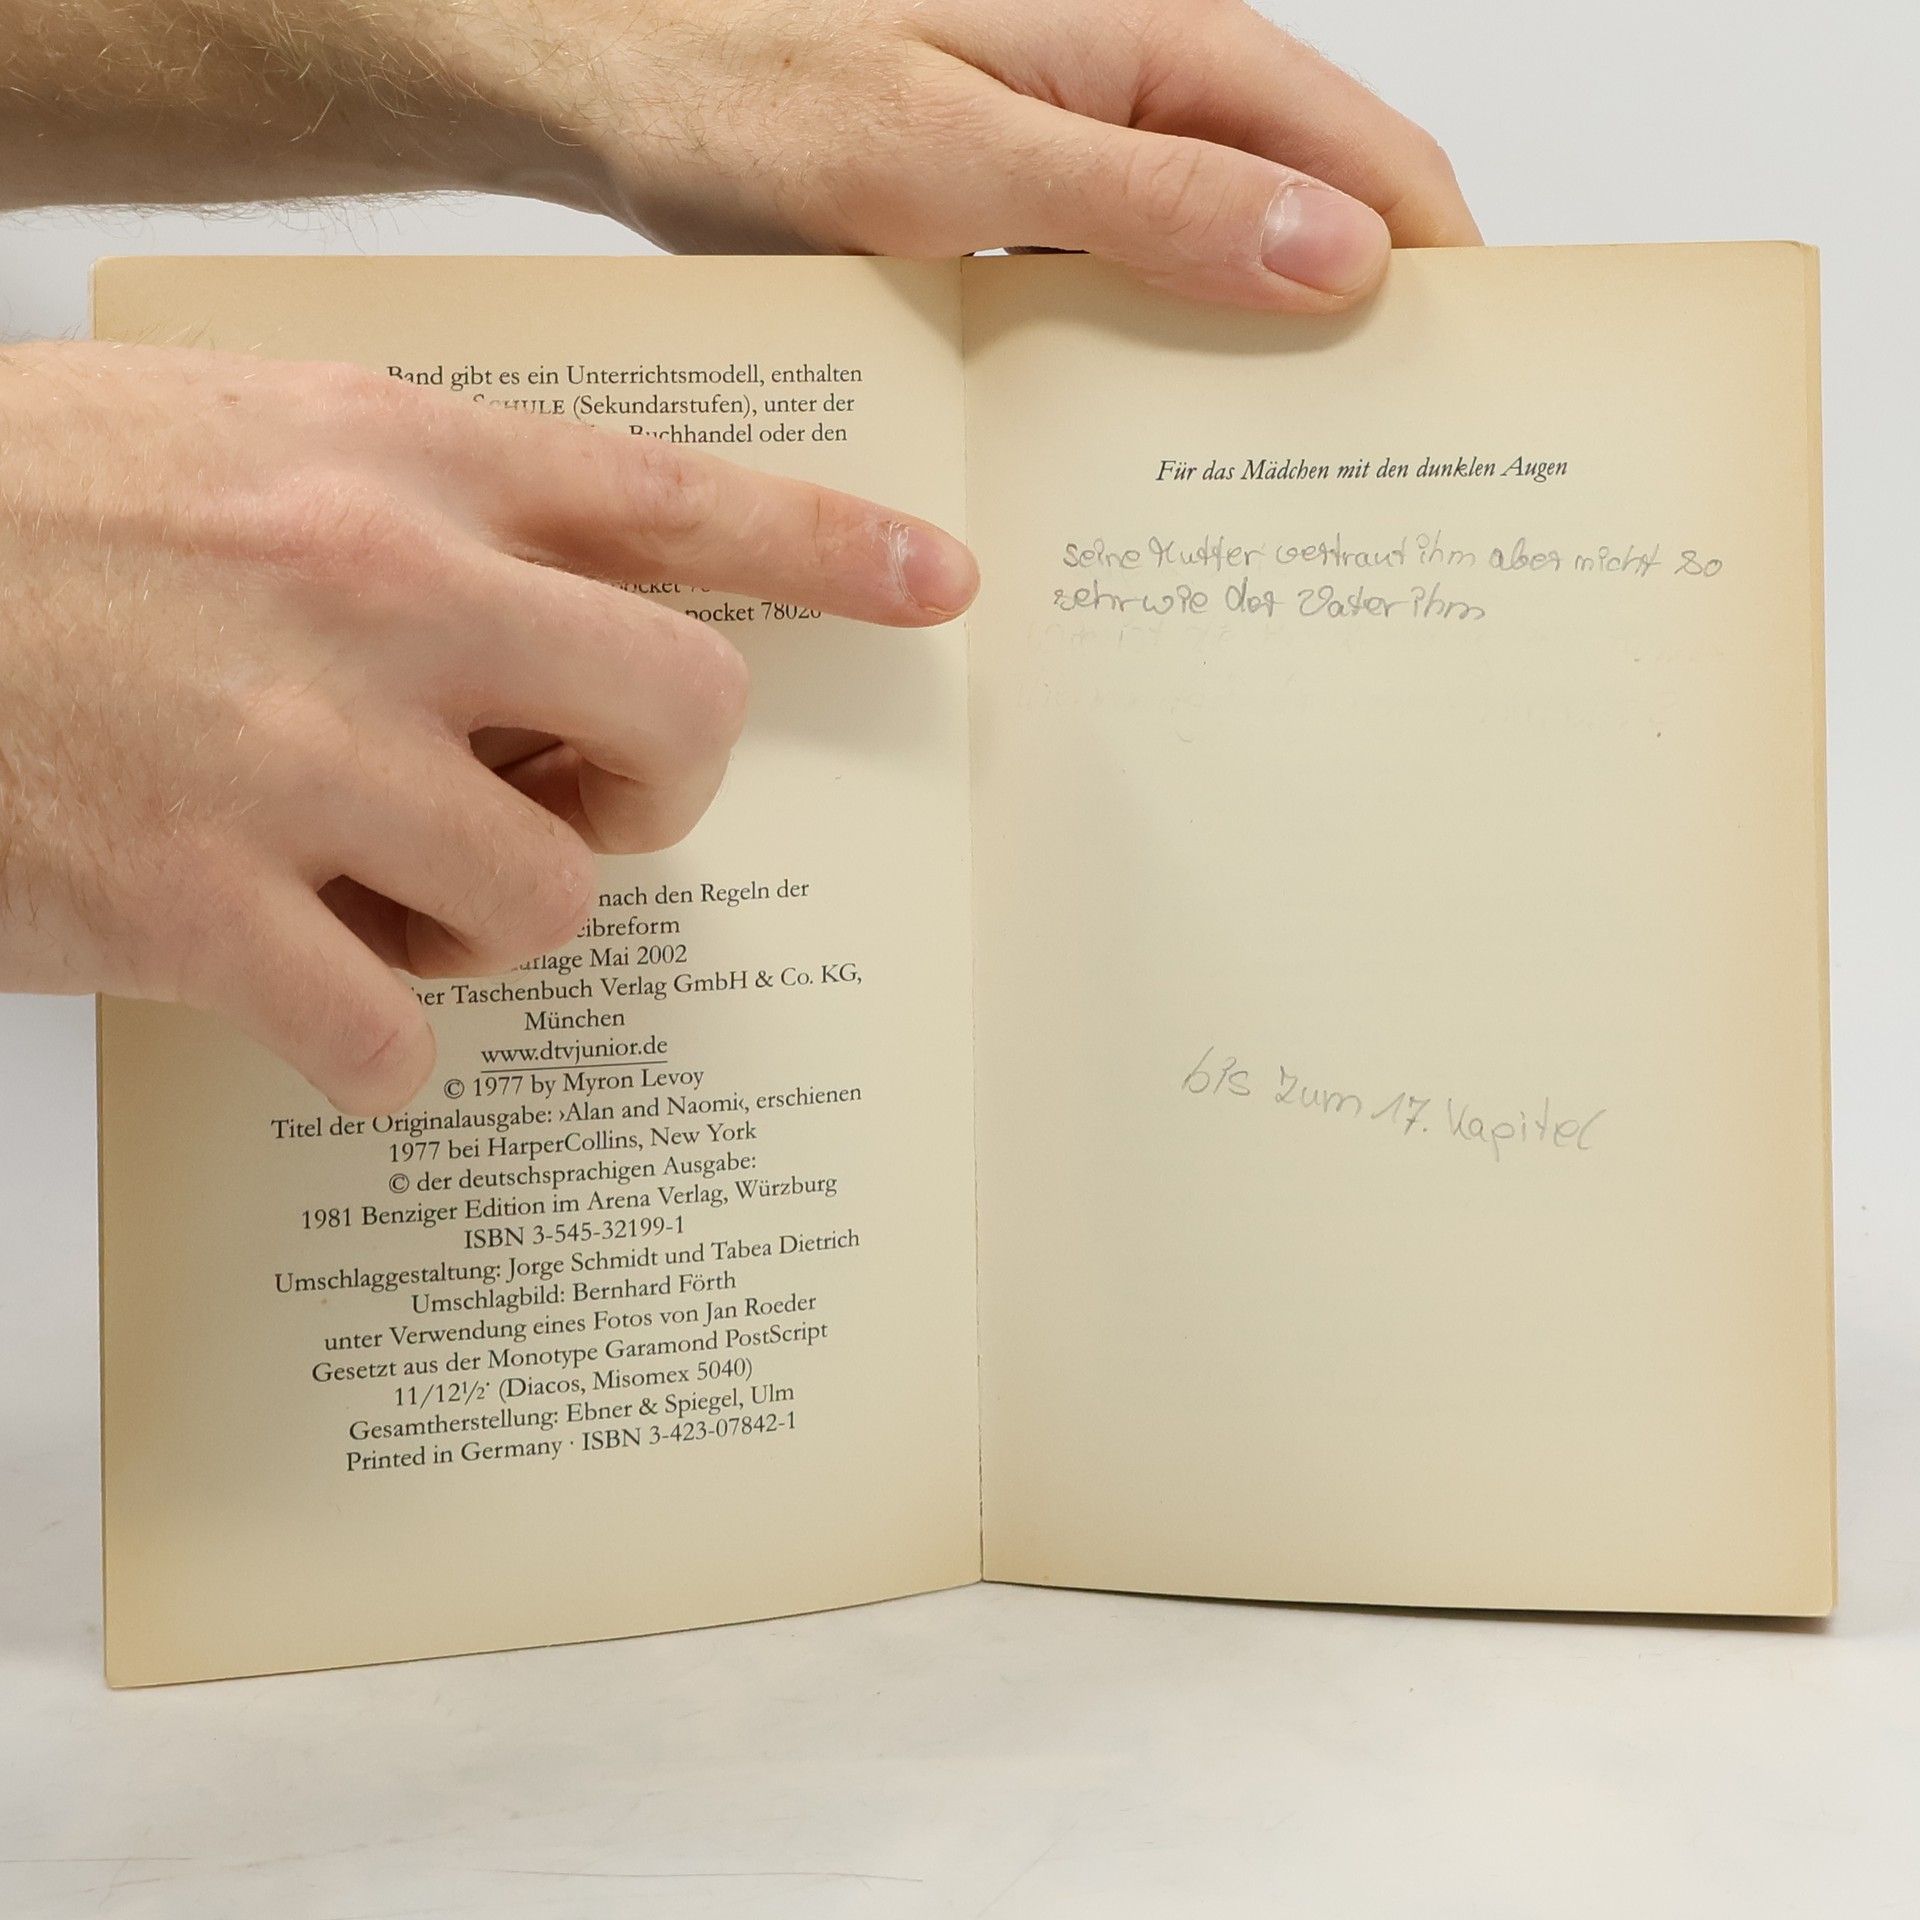 Band gibt es ein Unterrichtsmodell, enthalten
SCHULE (Sekundarstufen), unter der
Buchhandel oder den
pocket 78020
nach den Regeln der
eibreform
uflage Mai 2002
her Taschenbuch Verlag GmbH & Co. KG,
München
www.dtvjunior.de
© 1977 by Myron Levoy
Titel der Originalausgabe: ›Alan and Naomi‹, erschienen
1977 bei HarperCollins, New York
© der deutschsprachigen Ausgabe:
1981 Benziger Edition im Arena Verlag, Würzburg
ISBN 3-545-32199-1
Umschlaggestaltung: Jorge Schmidt und Tabea Dietrich
Umschlagbild: Bernhard Förth
unter Verwendung eines Fotos von Jan Roeder
Gesetzt aus der Monotype Garamond PostScript
11/12½˙ (Diacos, Misomex 5040)
Gesamtherstellung: Ebner & Spiegel, Ulm
Printed in Germany · ISBN 3-423-07842-1
Für das Mädchen mit den dunklen Augen
seine Mutter vertraut ihm aber nicht so
sehr wie der Vater ihm
bis zum 17. Kapitel